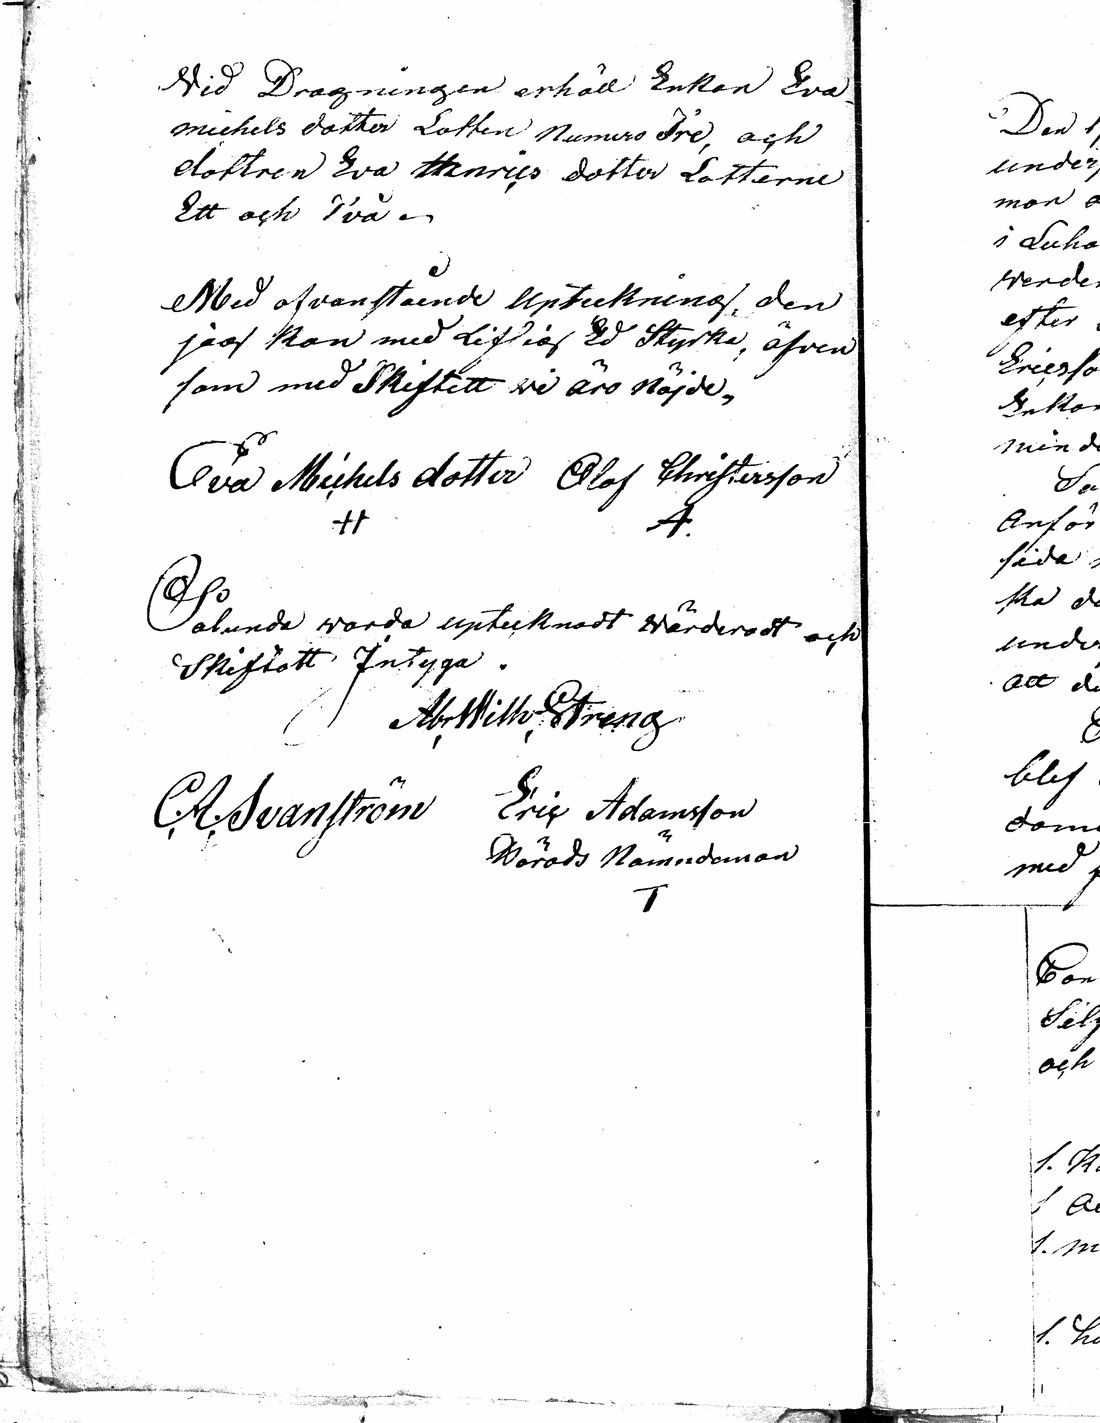 Vid Dragningen erhöll Enkan Eva
Michels dotter Lotten Numero Tre, och
dottren Eva Henrics dotter Lotterne
Ett och Två
Med ofvanstående Upteckning, den
jag kan med Liflig Ed Styrka, äfven
som med Skiftett vi äro Nöjde,
Eva Michels dotter Olof Christersson
H A.
Sålunda warda uptecknadt wärderadt och
Skiftatt Intyga.
Abr. Wilh. Streng
C. A. Svanström Eric Adamsson
Härads Nämndeman
T
Den
under
mor
i Luho
werder
efter
Ericsso
Enkan
minde
Anför
sida
ka
under
att
blef
dome
med
och
1.
1
1. m
1.